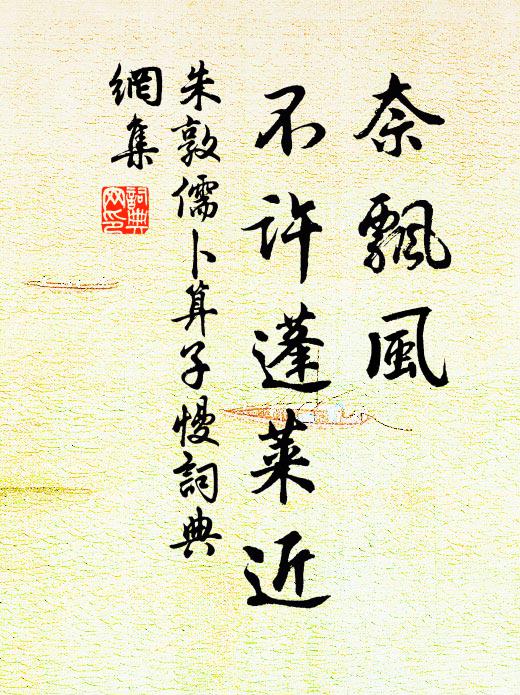 奈飄風
不許蓬萊近
朱敦儒卜算子慢詞典
網集
詞典
网印